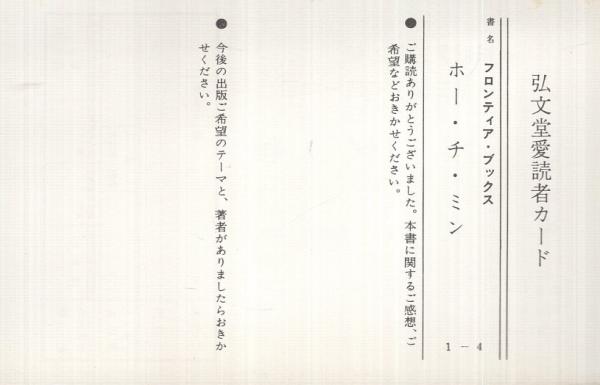 弘文堂愛読者カード
書名 フロンティア・ブックス
ホー・チ・ミン
1－4
●ご購読ありがとうございました。本書に関するご感想、ご
希望などおきかせください。
●今後の出版ご希望のテーマと、著者がありましたらおきか
せください。